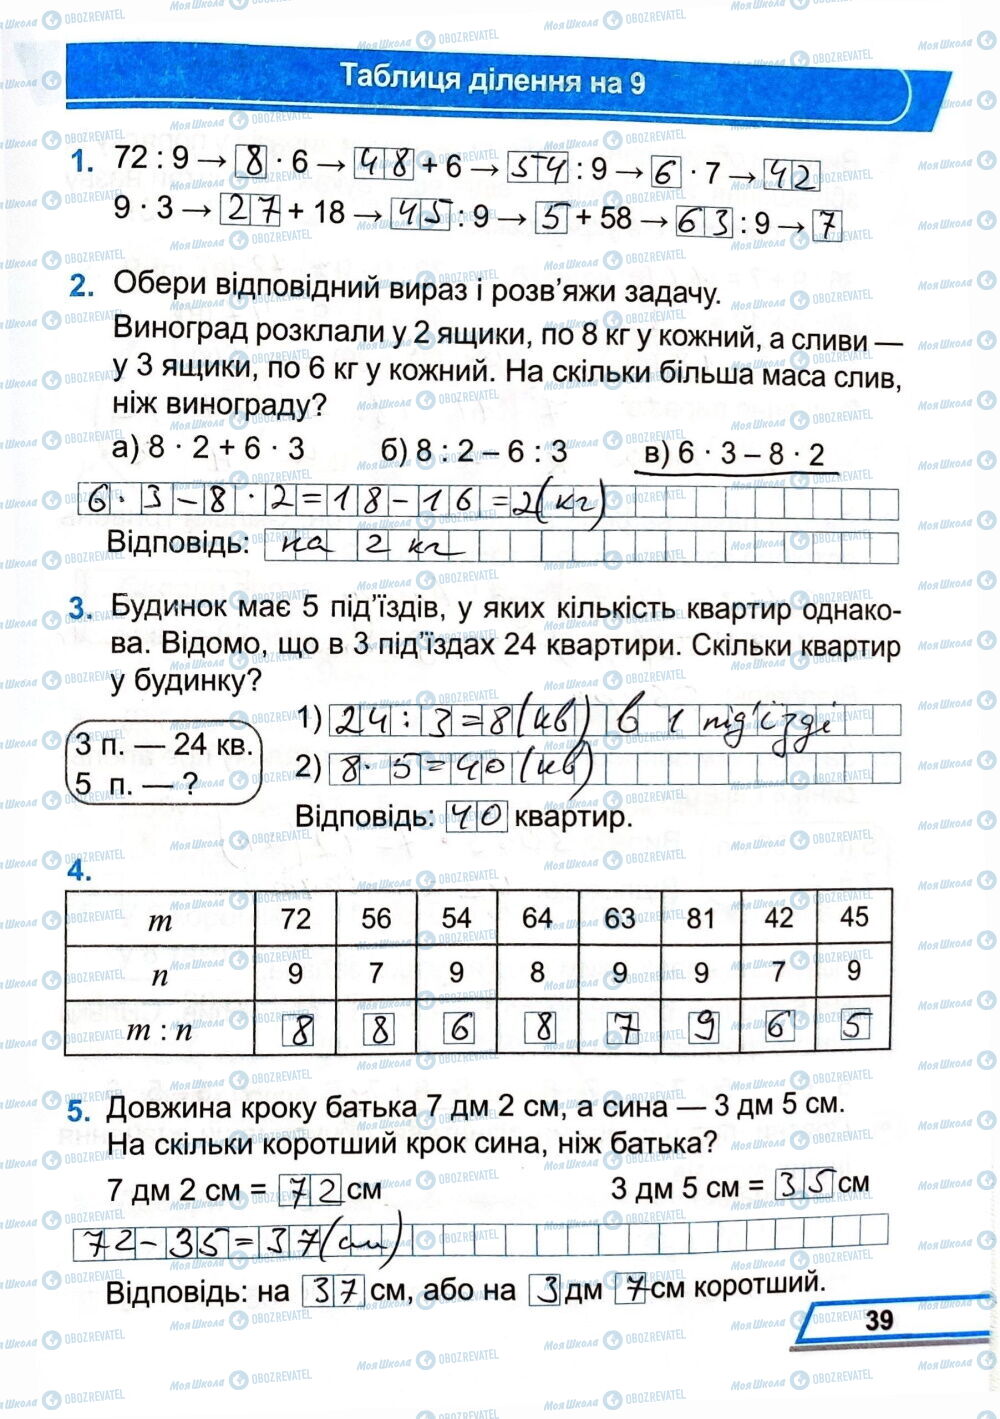 Таблиця ділення на 9
1. 72 : 9 → 8 · 6 → 48 + 6 → 54 : 9 → 6 · 7 → 42
9 · 3 → 27 + 18 → 45 : 9 → 5 + 58 → 63 : 9 → 7
2. Обери відповідний вираз і розв’яжи задачу.
Виноград розклали у 2 ящики, по 8 кг у кожний, а сливи —
у 3 ящики, по 6 кг у кожний. На скільки більша маса слив,
ніж винограду?
а) 8 · 2 + 6 · 3 б) 8 : 2 – 6 : 3 в) 6 · 3 – 8 · 2
6 · 3 – 8 · 2 = 18 – 16 = 2 (кг)
Відповідь: на 2 кг
3. Будинок має 5 під’їздів, у яких кількість квартир однако-
ва. Відомо, що в 3 під’їздах 24 квартири. Скільки квартир
у будинку?
3 п. — 24 кв.
5 п. — ?
1) 24 : 3 = 8 (кв) в 1 під’їзді
2) 8 · 5 = 40 (кв)
Відповідь: 40 квартир.
4.
m 72 56 54 64 63 81 42 45
n 9 7 9 8 9 9 7 9
m : n 8 8 6 8 7 9 6 5
5. Довжина кроку батька 7 дм 2 см, а сина — 3 дм 5 см.
На скільки коротший крок сина, ніж батька?
7 дм 2 см = 72 см 3 дм 5 см = 35 см
72 – 35 = 37 (см)
Відповідь: на 37 см, або на 3 дм 7 см коротший.
39
МояШкола OBOZREVATEL